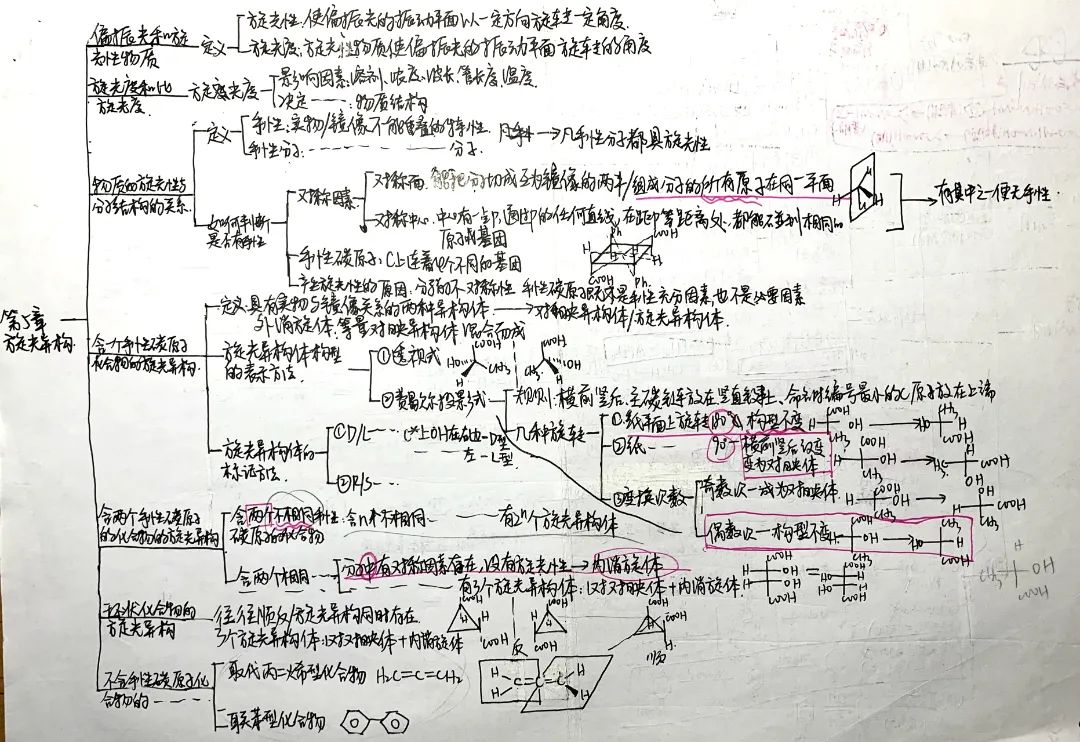 第5章
旋光异构
偏振光和旋
光性物质
定义
旋光性:使偏振光的振动平面以一定方向旋转一定角度.
旋光度:旋光性物质使偏振光的振动平面旋转的角度
旋光度和比
旋光度.
旋光度
影响因素:溶剂、浓度、波长、管长度、温度.
决定------:物质结构
物质的旋光性与
分子结构的关系.
定义
手性:实物/镜像不能重叠的特性.
手性分子:------分子.
凡手性分子都具旋光性
如何判断
是否有手性
对称因素
对称面:能把分子切成互为镜像的两半/组成分子的所有原子在同一平面
对称中心:中心有一点P,通过P的任何直线,在距P等距离处,都能遇到相同的
原子或基团
有其中之一便无手性.
Ph
COOH
H
H
COOH
Ph.
手性碳原子:C上连着4个不同的基团
产生旋光性的原因:分子的不对称性
手性碳原子既不是手性充分因素,也不是必要因素
含一个手性碳原子
化合物的旋光异构.
定义:具有实物与镜像关系的两种异构体
对映异构体/旋光异构体.
外消旋体:等量对映异构体混合而成
旋光异构体构型
的表示方法.
①透视式
COOH
HO
CH₃
H
COOH
OH
CH₃
H
②费歇尔投影式
规则:横前竖后,主碳链放在竖直线上,命名时编号最小的C原子放在上端
几种旋转
①纸平面上旋转180°,构型不变
②纸---- 90°—横前竖后改变
变为对映体
③变换次数
奇数次—成为对映体.
偶数次—构型不变
旋光异构体的
标记方法.
①D/L---
C*上OH在右边—D型
左—L型
②R/S---
含两个手性碳原子
的化合物的旋光异构
含两个不相同手性
碳原子的化合物
含n个不相同------有2ⁿ个旋光异构体
含两个相同---
分子中有对称因素存在,没有旋光性→内消旋体
------有3个旋光异构体:一对对映体+内消旋体.
环状化合物的
旋光异构
往往顺反/旋光异构同时存在.
3个旋光异构体:一对对映体+内消旋体
反
顺
不含手性碳原子化
合物的----
取代丙二烯型化合物 H₂C=C=CH₂
联苯型化合物